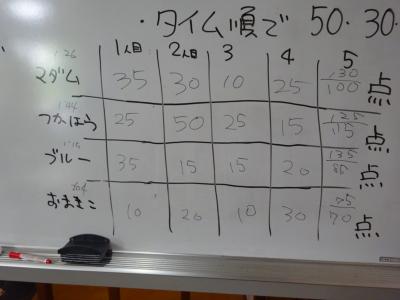 ・タイム順で 50・30・
1人目 2人目 3 4 5
マダム 35 30 10 25 130 100 点
つかほう 25 50 25 15 125 115 点
ブルー 35 15 15 20 135 85 点
おままこ 10 20 10 30 70 点